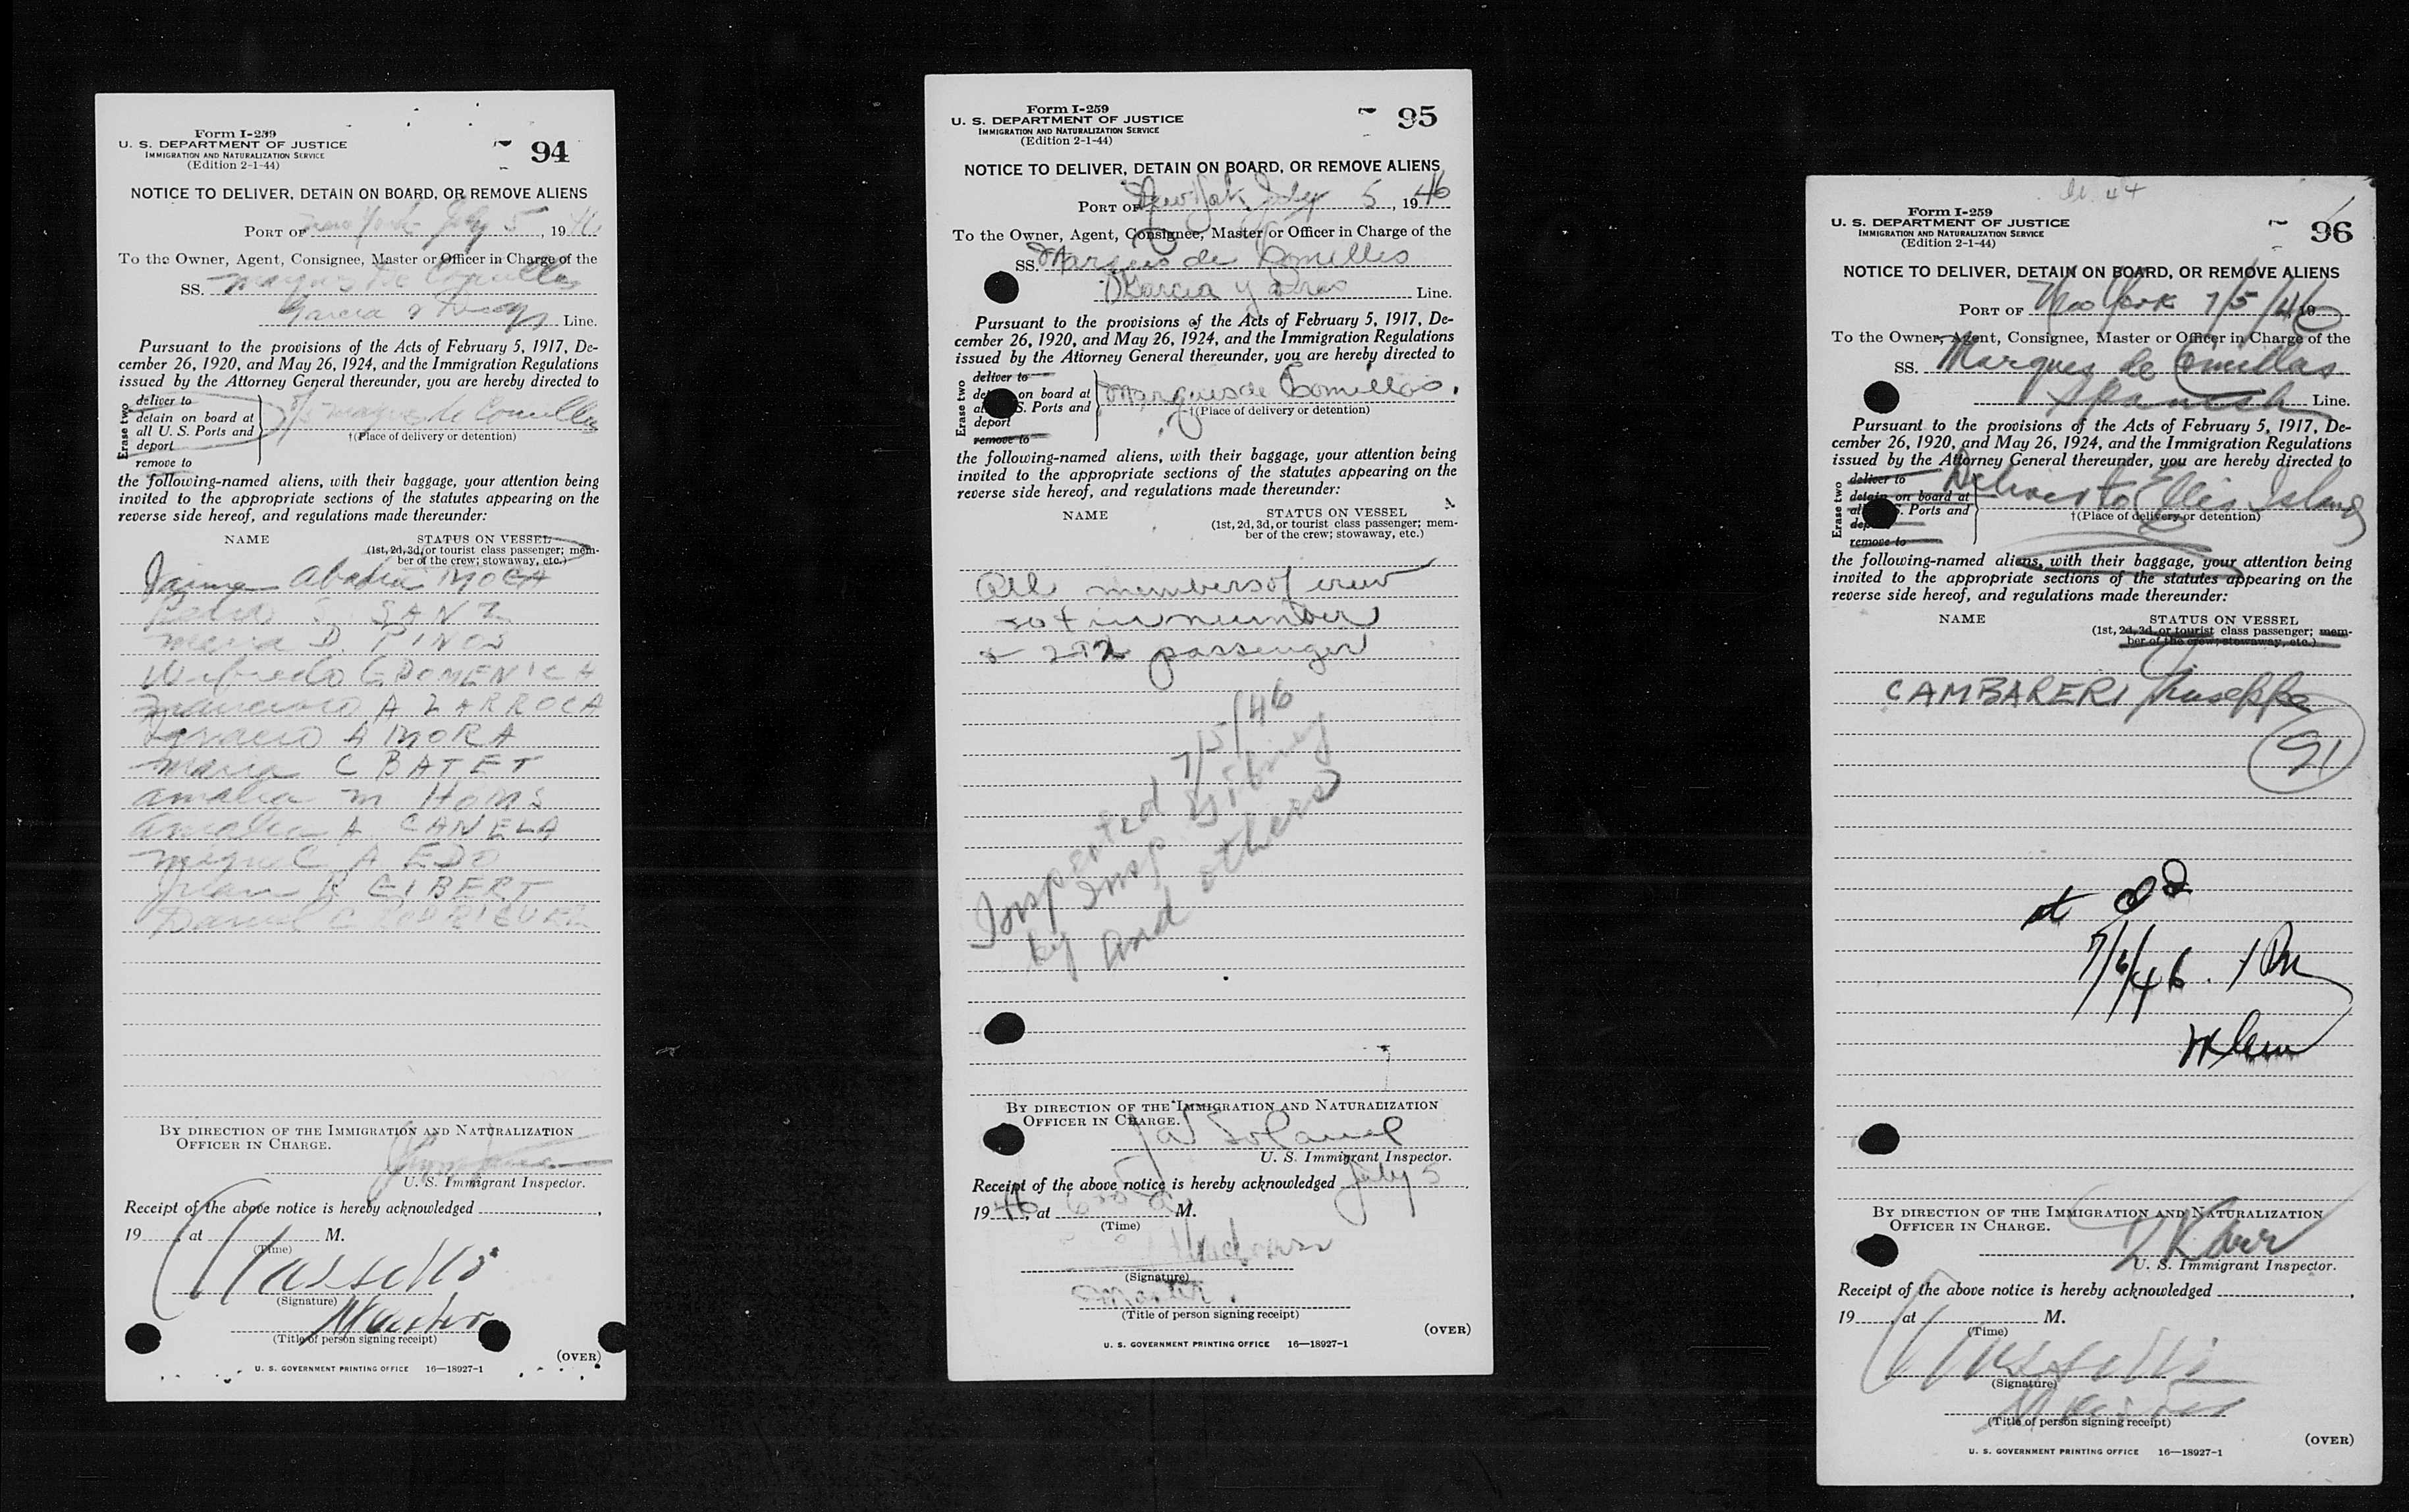 Form I-259
U. S. DEPARTMENT OF JUSTICE
IMMIGRATION AND NATURALIZATION SERVICE
(Edition 2-1-44)
94
NOTICE TO DELIVER, DETAIN ON BOARD, OR REMOVE ALIENS
PORT OF New York July 5, 1946
To the Owner, Agent, Consignee, Master or Officer in Charge of the
SS. Marques de Comillas
Garcia & Line.
Pursuant to the provisions of the Acts of February 5, 1917, De-
cember 26, 1920, and May 26, 1924, and the Immigration Regulations
issued by the Attorney General thereunder, you are hereby directed to
Erase two
deliver to
detain on board at
all U. S. Ports and
deport
remove to
S/S Marques de Comillas
†(Place of delivery or detention)
the following-named aliens, with their baggage, your attention being
invited to the appropriate sections of the statutes appearing on the
reverse side hereof, and regulations made thereunder:
NAME STATUS ON VESSEL
(1st, 2d, 3d, or tourist class passenger; mem-
ber of the crew; stowaway, etc.)
Jaime Abadia MOCA
Pedro S. SANZ
Maria D. PINOS
Wifredo G DOMENICH
Francisco A ZARROCA
Ignacio A MORA
Maria C BATET
Amalia M HOMS
Amalia A CANELA
Miguel A EDO
Juan B GIBERT
Daniel C RODRIGUEZ
BY DIRECTION OF THE IMMIGRATION AND NATURALIZATION
OFFICER IN CHARGE.
U. S. Immigrant Inspector.
Receipt of the above notice is hereby acknowledged
19 , at M.
(Time)
(Signature)
Master
(Title of person signing receipt)
(OVER)
U. S. GOVERNMENT PRINTING OFFICE 16—18927-1
Form I-259
U. S. DEPARTMENT OF JUSTICE
IMMIGRATION AND NATURALIZATION SERVICE
(Edition 2-1-44)
95
NOTICE TO DELIVER, DETAIN ON BOARD, OR REMOVE ALIENS
PORT OF New York, July 5, 1946
To the Owner, Agent, Consignee, Master or Officer in Charge of the
SS. Marques de Comillas
Garcia y Diaz Line.
Pursuant to the provisions of the Acts of February 5, 1917, De-
cember 26, 1920, and May 26, 1924, and the Immigration Regulations
issued by the Attorney General thereunder, you are hereby directed to
Erase two
deliver to
on board at
S. Ports and
deport
remove to
Marques de Comillas.
†(Place of delivery or detention)
the following-named aliens, with their baggage, your attention being
invited to the appropriate sections of the statutes appearing on the
reverse side hereof, and regulations made thereunder:
NAME STATUS ON VESSEL
(1st, 2d, 3d, or tourist class passenger; mem-
ber of the crew; stowaway, etc.)
All members of crew
in number
& passenger
Inspected 7/5/46
by Insp
and others
BY DIRECTION OF THE IMMIGRATION AND NATURALIZATION
OFFICER IN CHARGE.
U. S. Immigrant Inspector.
Receipt of the above notice is hereby acknowledged July 5,
1946, at M.
(Time)
(Signature)
Master.
(Title of person signing receipt)
(OVER)
U. S. GOVERNMENT PRINTING OFFICE 16—18927-1
Form I-259
U. S. DEPARTMENT OF JUSTICE
IMMIGRATION AND NATURALIZATION SERVICE
(Edition 2-1-44)
96
NOTICE TO DELIVER, DETAIN ON BOARD, OR REMOVE ALIENS
PORT OF New York 7/5/46, 19
To the Owner, Agent, Consignee, Master or Officer in Charge of the
SS. Marques de Comillas
Spanish Line.
Pursuant to the provisions of the Acts of February 5, 1917, De-
cember 26, 1920, and May 26, 1924, and the Immigration Regulations
issued by the Attorney General thereunder, you are hereby directed to
Erase two
deliver to
detain on board at
S. Ports and
remove to
Deliver to Ellis Island
†(Place of delivery or detention)
the following-named aliens, with their baggage, your attention being
invited to the appropriate sections of the statutes appearing on the
reverse side hereof, and regulations made thereunder:
NAME STATUS ON VESSEL
(1st, 2d, 3d, or tourist class passenger; mem-
ber of the crew; stowaway, etc.)
CAMBARERI Giuseppe
91
at
7/6/46. 1 PM
BY DIRECTION OF THE IMMIGRATION AND NATURALIZATION
OFFICER IN CHARGE.
U. S. Immigrant Inspector.
Receipt of the above notice is hereby acknowledged
19 , at M.
(Time)
(Signature)
(Title of person signing receipt)
(OVER)
U. S. GOVERNMENT PRINTING OFFICE 16—18927-1